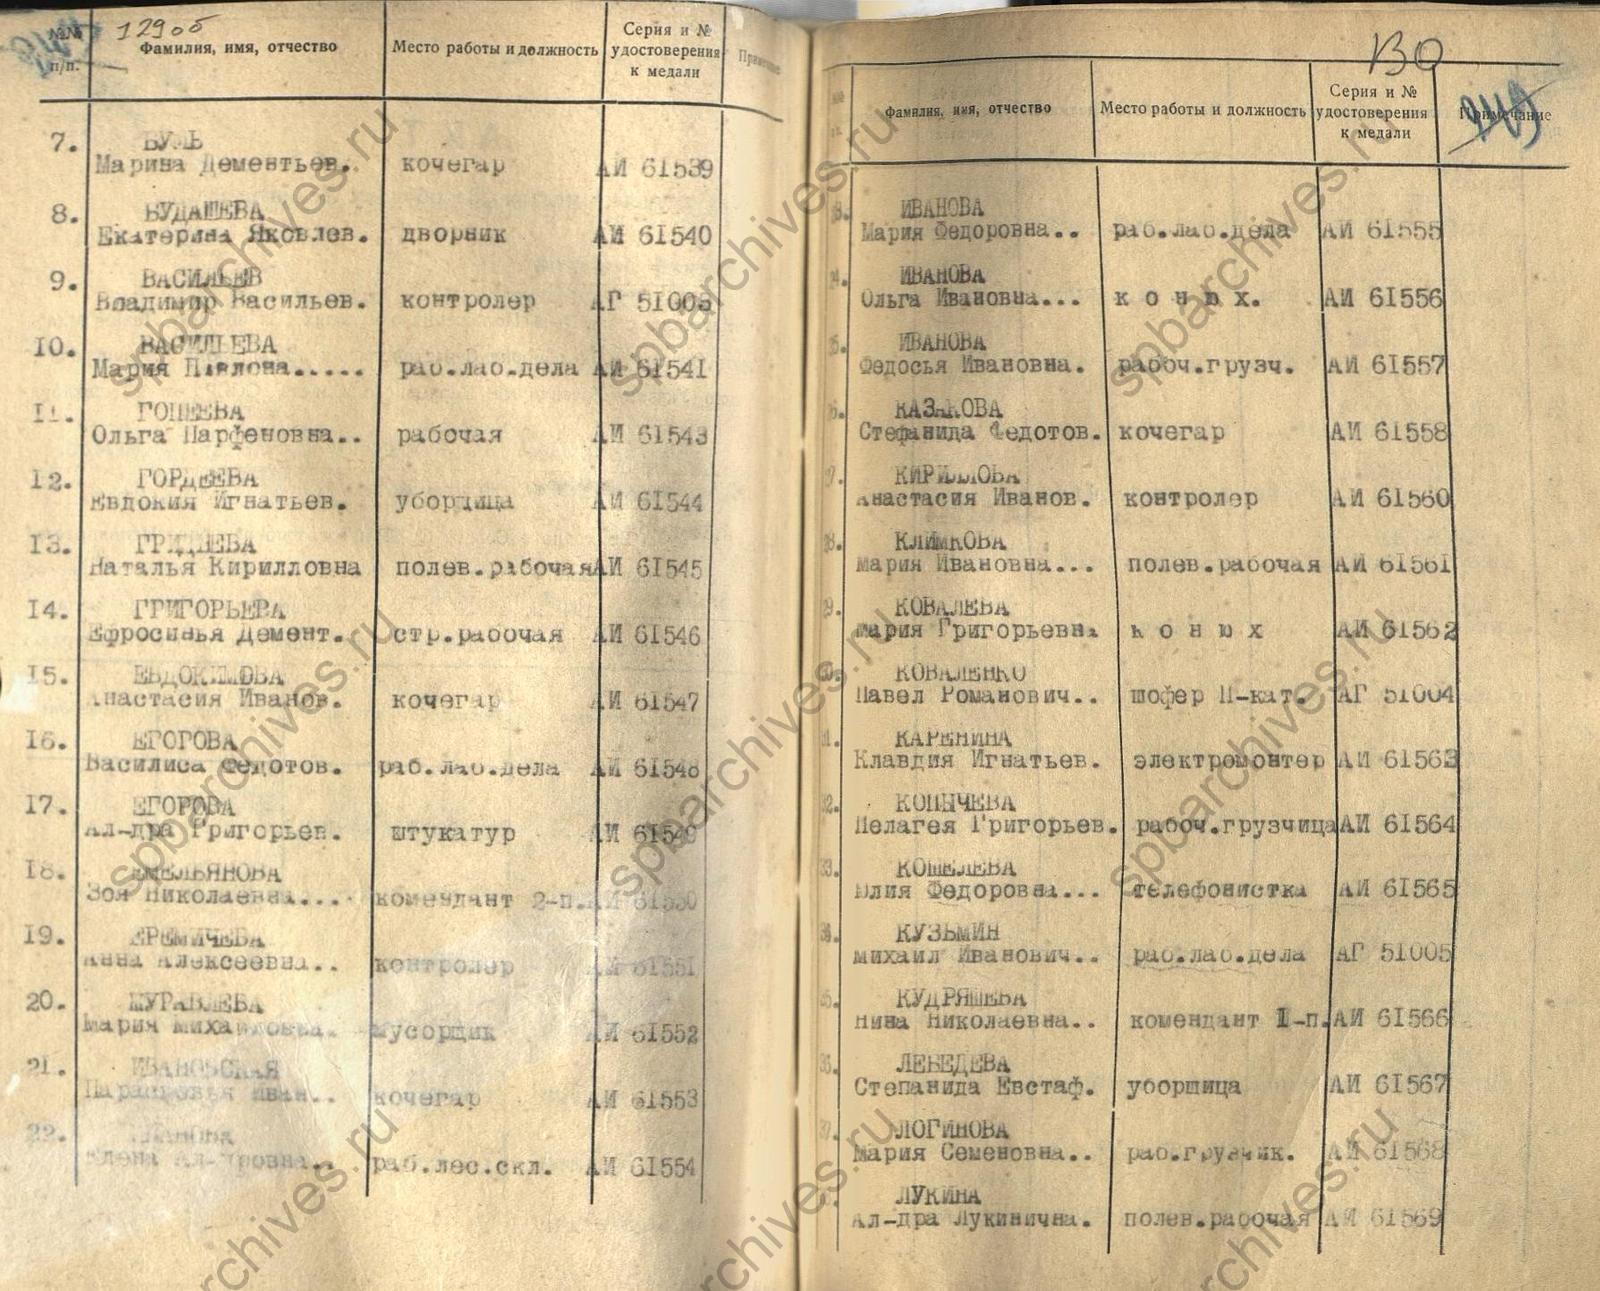 129 об
№№ п/п.
Фамилия, имя, отчество
Место работы и должность
Серия и № удостоверения к медали
7. БУЛЬ
Марина Дементьев. кочегар АИ 61539
8. БУДАШЕВА
Екатерина Яковлев. дворник АИ 61540
9. ВАСИЛЬЕВ
Владимир Васильев. контролер АГ 51003
10. ВАСИЛЬЕВА
Мария Павлова..... раб.лаб.дела АИ 61541
11. ГОПЕЕВА
Ольга Парфеновна.. рабочая АИ 61543
12. ГОРДЕЕВА
Евдокия Игнатьев. уборщица АИ 61544
13.
Наталья Кирилловна полев.рабочая АИ 61545
14. ГРИГОРЬЕВА
Ефросинья Демент. стр.рабочая АИ 61546
15. ЕВДОКИМОВА
Анастасия Иванов. кочегар АИ 61547
16. ЕГОРОВА
Василиса Федотов. раб.лаб.дела АИ 61548
17. ЕГОРОВА
Ал-дра Григорьев. штукатур АИ 61549
18. ЕМЕЛЬЯНОВА
Зоя Николаевна.... комендант 2-п. АИ 61550
19. ЕРЕМИЧЕВА
Анна Алексеевна.. контролер АИ 61551
20. ЖУРАВЛЕВА
Мария Михайловна. мусорщик АИ 61552
21. ИВАНОВСКАЯ
Парасковья Иван.. кочегар АИ 61553
22. ИВАНОВА
Елена Ал-дровна.. раб.лес.скл. АИ 61554
130
249
Фамилия, имя, отчество
Место работы и должность
Серия и № удостоверения к медали
Примечание
23. ИВАНОВА
Мария Федоровна.. раб.лаб.дела АИ 61555
24. ИВАНОВА
Ольга Ивановна... к о н ю х. АИ 61556
25. ИВАНОВА
Федосья Ивановна. рабоч.грузч. АИ 61557
26. КАЗАКОВА
Стефанида Федотов. кочегар АИ 61558
27. КИРИЛЛОВА
Анастасия Иванов. контролер АИ 61560
28. КЛИМКОВА
Мария Ивановна... полев.рабочая АИ 61561
29. КОВАЛЕВА
Мария Григорьевна к о н ю х АИ 61562
30. КОВАЛЕНКО
Павел Романович.. шофер II-кат. АГ 51004
31. КАРЕНИНА
Клавдия Игнатьев. электромонтер АИ 61563
32. КОПЫЧЕВА
Пелагея Григорьев. рабоч.грузчица АИ 61564
33. КОШЕЛЕВА
Юлия Федоровна... телефонистка АИ 61565
34. КУЗЬМИН
Михаил Иванович.. раб.лаб.дела АГ 51005
35. КУДРЯШЕВА
Нина Николаевна.. комендант I-п. АИ 61566
36. ЛЕБЕДЕВА
Степанида Евстаф. уборщица АИ 61567
37. ЛОГИНОВА
Мария Семеновна.. раб.грузчик. АИ 61568
ЛУКИНА
Ал-дра Лукинична. полев.рабочая АИ 61569
spbarchives.ru